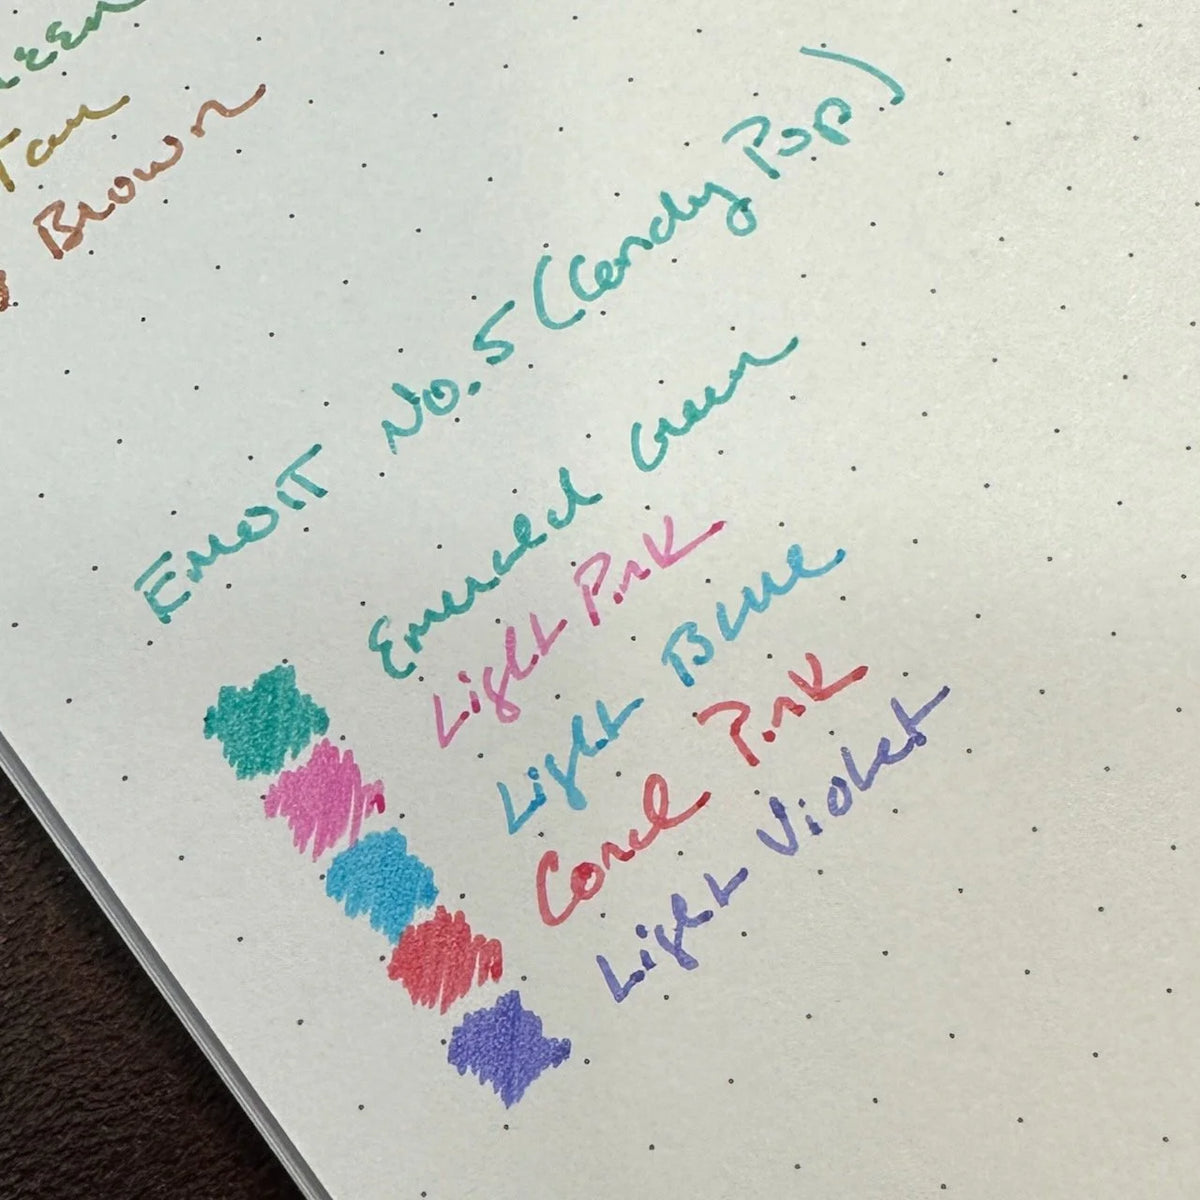 Tan
Brown
EMOTT No.5 (Candy Pop)
Emerald Green
Light Pink
Light Blue
Coral Pink
Light Violet